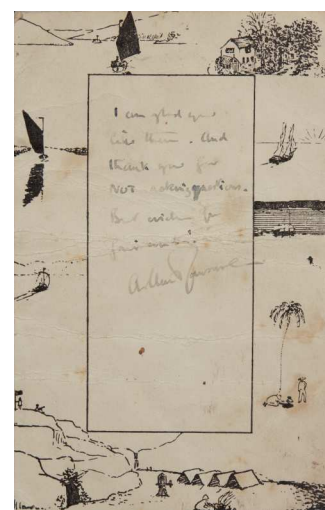 I am glad you
like them. And
thank you for
NOT asking questions.
Best wishes for
your
Arthur Ransome